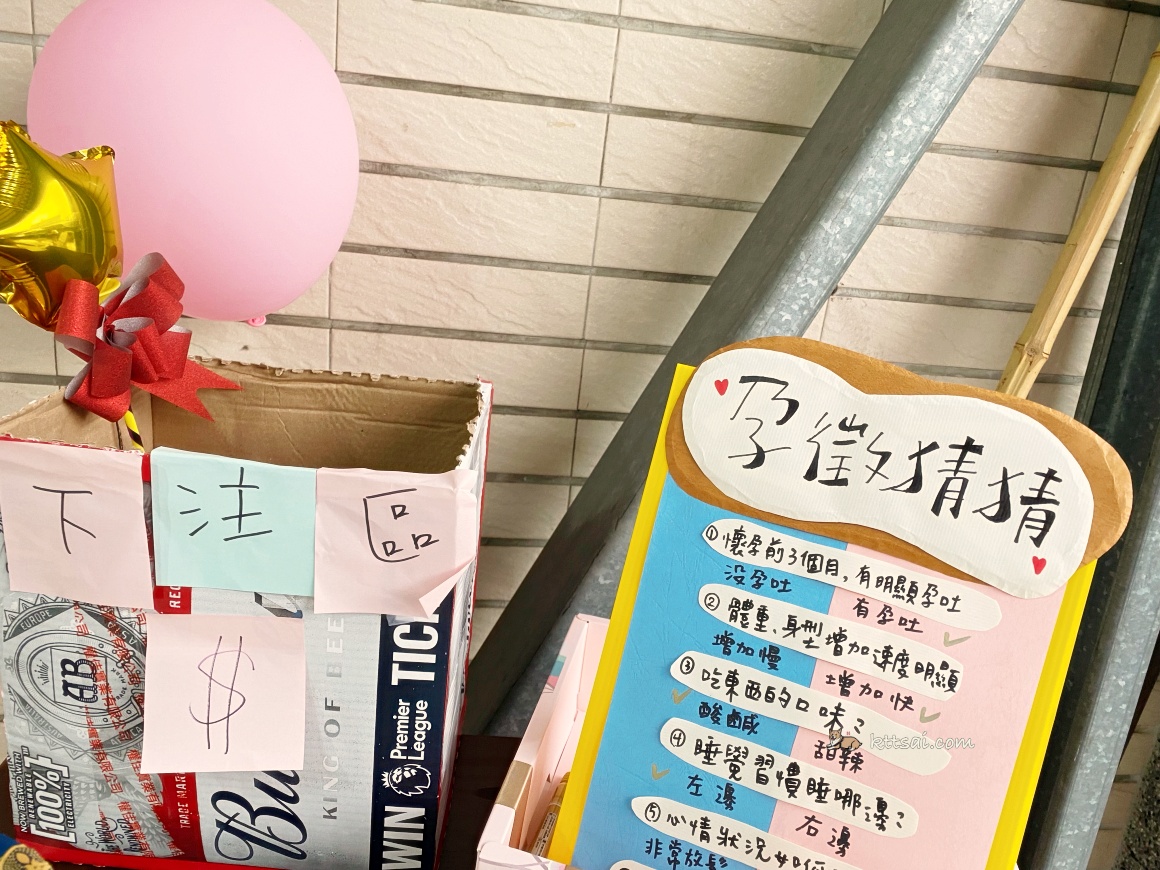 下注區
$
EUROPE
AB
NOW BREWED WITH
100%
RENEWABLE
ELECTRICITY
TRADE MAR
Bu
KING OF BEE
WIN
TIC
Premier
League
孕徵猜猜
①懷孕前3個月,有明顯孕吐
沒孕吐 有孕吐
②體重、身型增加速度明顯
增加慢 增加快
③吃東西的口味?
酸鹹 甜辣
④睡覺習慣睡哪邊?
左邊 右邊
⑤心情狀況如何
非常放鬆
kttsai.com